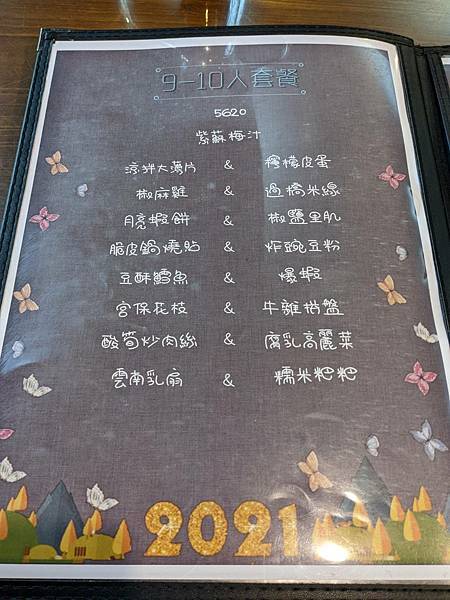 9-10人套餐
5620
紫蘇梅汁
涼拌大薄片 & 檸檬皮蛋
椒麻雞 & 過橋米線
月亮蝦餅 & 椒鹽里肌
脆皮鍋燒貼 & 炸豌豆粉
豆酥鱈魚 & 爆蝦
宮保花枝 & 牛雜拼盤
酸筍炒肉絲 & 腐乳高麗菜
雲南乳扇 & 糯米粑粑
2021